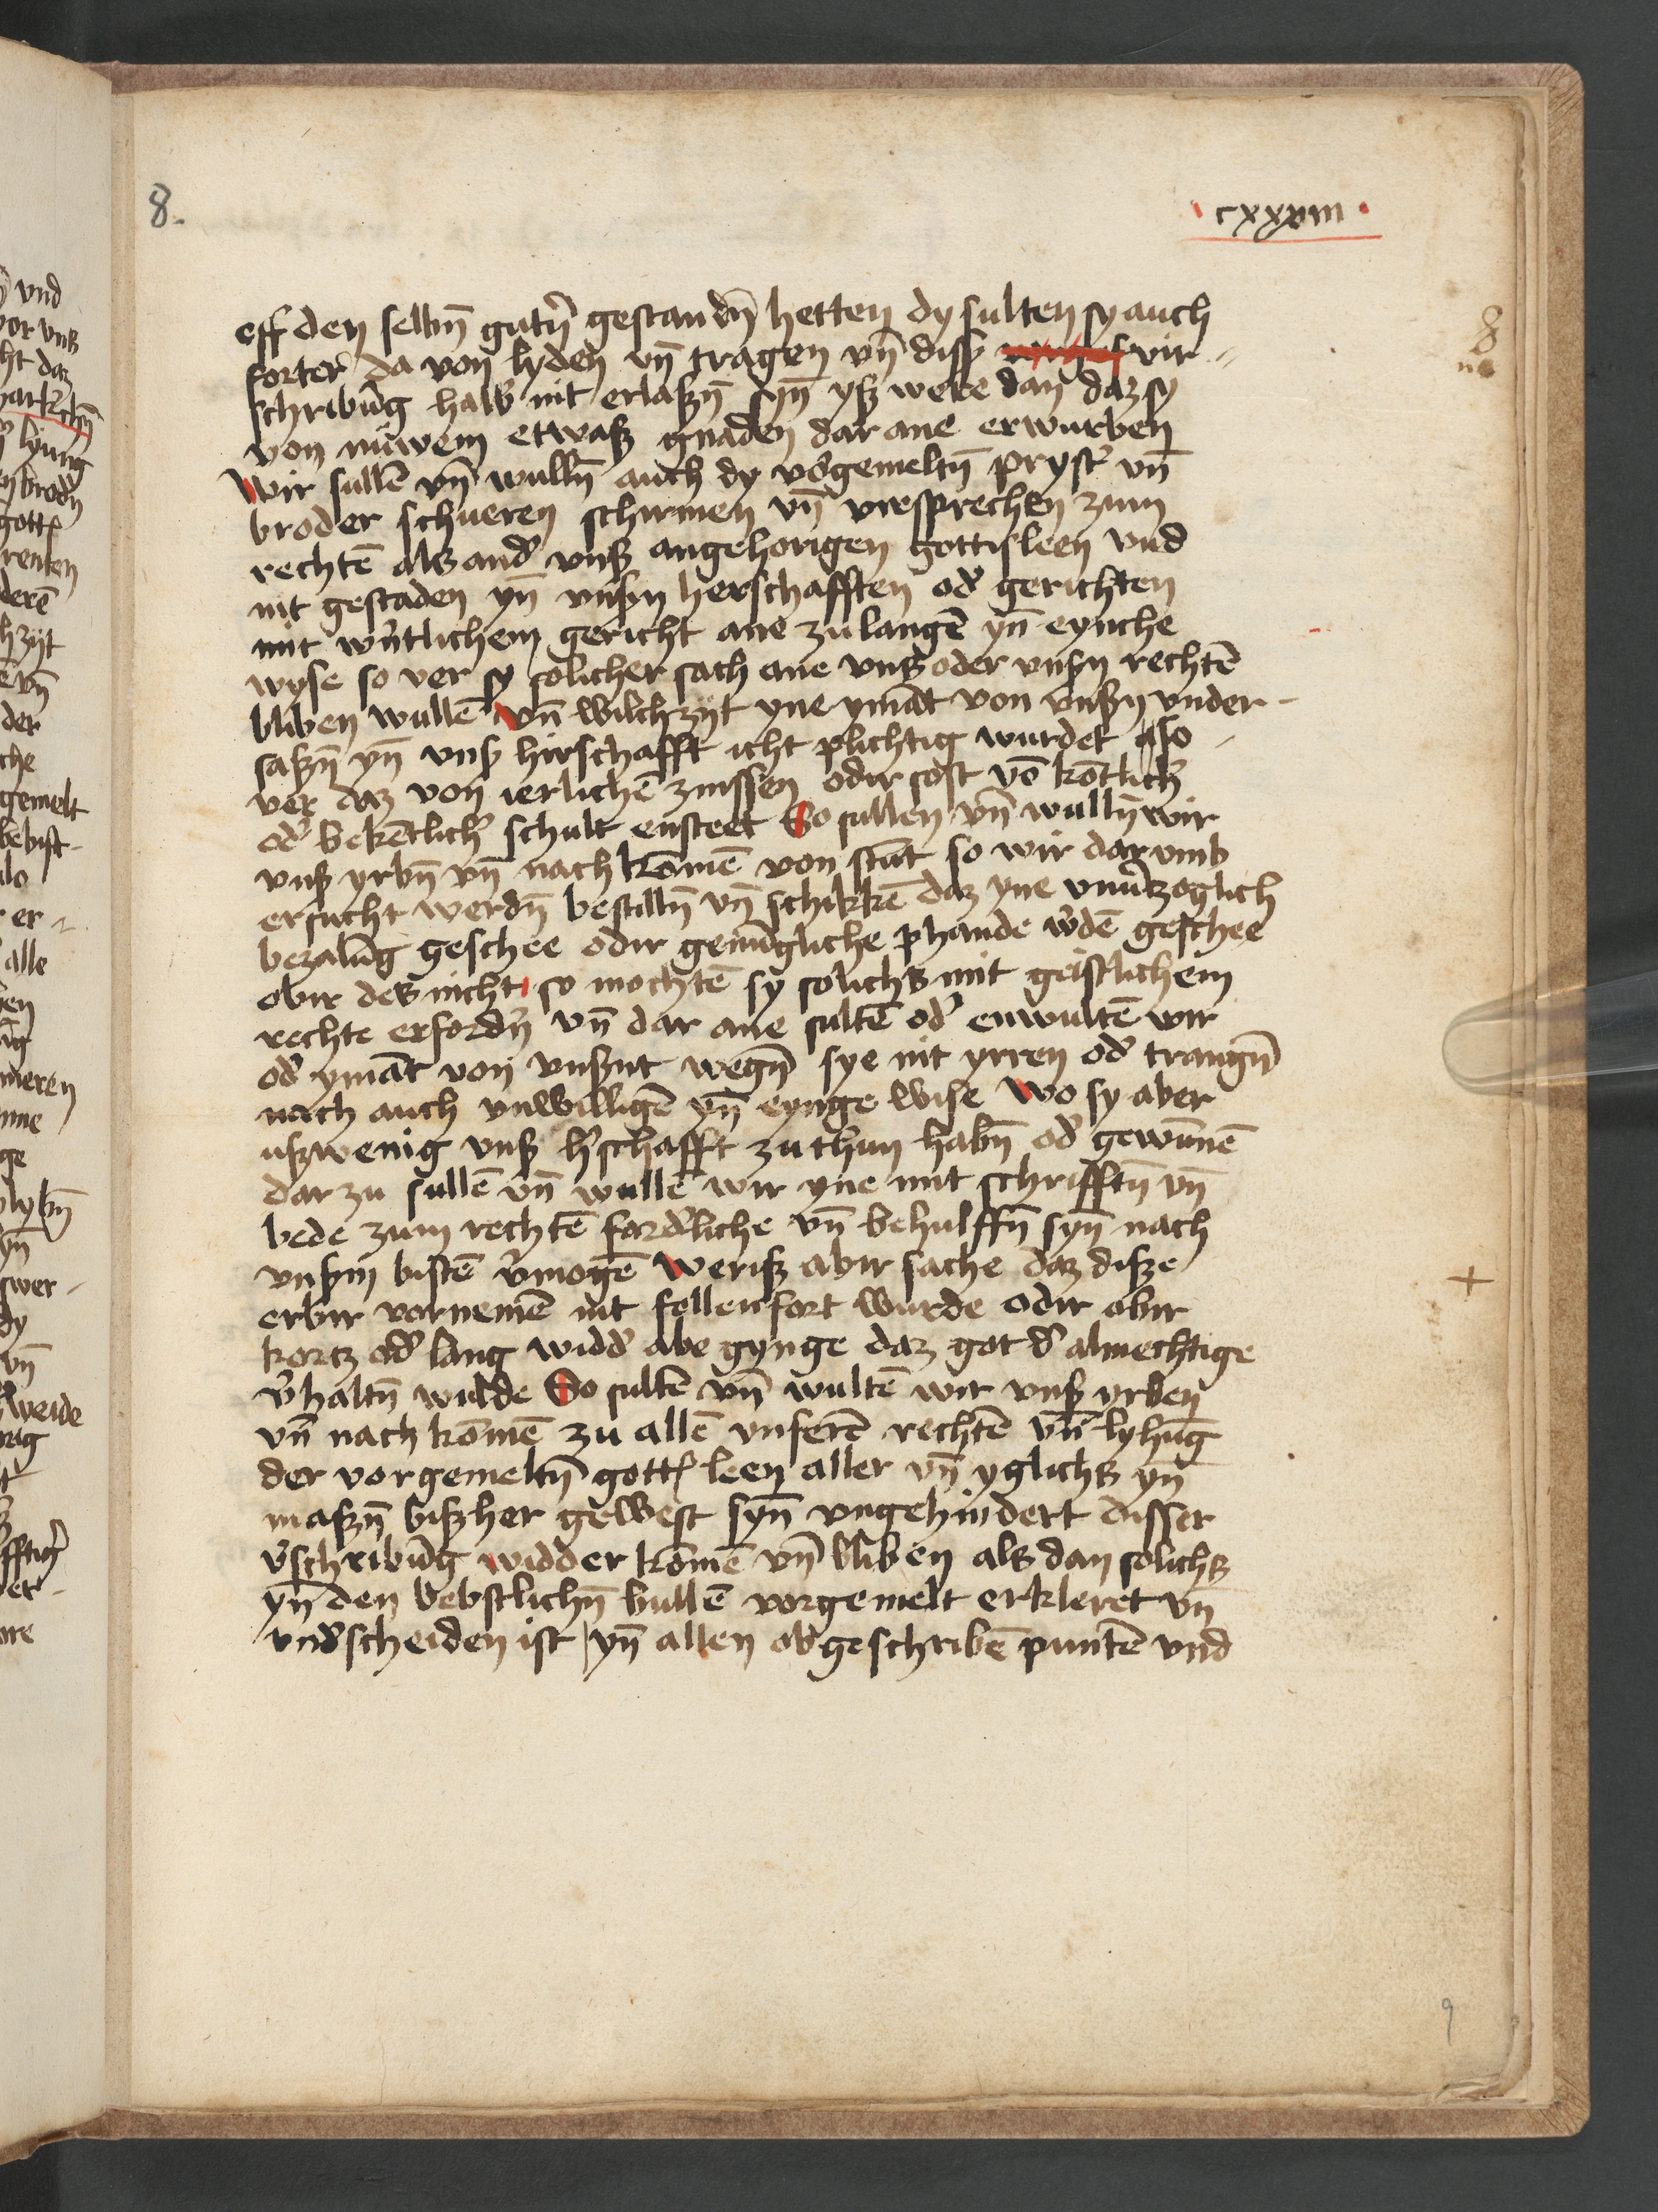 8.
cxxxviii
eff den selbn̄ gutn̄ gestandn̄ hetten dy sulten sy auch
forter da von lyden vn̄ tragen vn̄ disß vir-
schribūg halb nit erlaßn̄ syn̄ yß were dan daz sy
von nuwem etwaß gnaden dar ane erwurben
Wir sullē vn̄ wulln̄ auch dy vorgemeltn̄ pryster vn̄
broder schueren schirmen vn̄ vresprechen zum
rechtē als ander vnß angehorigen gottisleen vnd
nit gestaden yn̄ vnßn herschafften oder gerichten
mit wertlichem gericht ane zu langē yn̄ eynche
wyse so ver sy solicher sach ane vns oder vnßn rechtē
bliben wullē vn̄ wilch zyt yne ymāt von vnßn vnder-
saßn̄ yn̄ vnß hirschafft icht plichtig wurdet also
ver daz von ierlichē zinssen odir sost vō kōtlicher
oder bekētlicher schult ensteet So sullen vn̄ wulln̄ wir
vnß yrbn̄ vn̄ nach kōmē von stūt so wir dar vmb
ersucht werdn̄ bestilln̄ vn̄ schikkē daz yne vnuerzoglich
bezalūg geschee odir genūgliche phande werdē geschee
obir des nicht so mochtē sy solichs mit geistlichem
rechte erfordern vn̄ dar ane sultē oder enwultē wir
oder ymāt von vnßnt wegn̄ sye nit yrren oder trangn̄
nach auch vnwilligē yn̄ eynge wise Wo sy aber
ußwenig vnß herschafft zu thun habn̄ oder gewūnē
dar zu sullē vn̄ wullē wir yne mit schrifftn̄ vn̄
bede zum rechtē forderliche vn̄ behulffn̄ syn̄ nach
vnßm bistē vermogē Weriß abir sache daz disze
erbir vornemē nit follenfort wurde odir obir
kortz oder lang widder abe gynge daz got der almechtige
verhaltn̄ wulde So sultē vn̄ wultē wir vnß yrben
vn̄ nach kōmē zu allē vnserē rechtē vn̄ lyhūg
der vorgemeltn̄ gottis leen aller vn̄ yglichs yn̄
maßn̄ bißher gewest syn̄ vngehindert disser
verschribūg widder kōmē vn̄ bliben als dan solichs
yn̄ den bebstlichn̄ bullē vorgemelt erkleret vn̄
vnderscheiden ist yn̄ allen obgeschribē puntē vnd
8
+
9